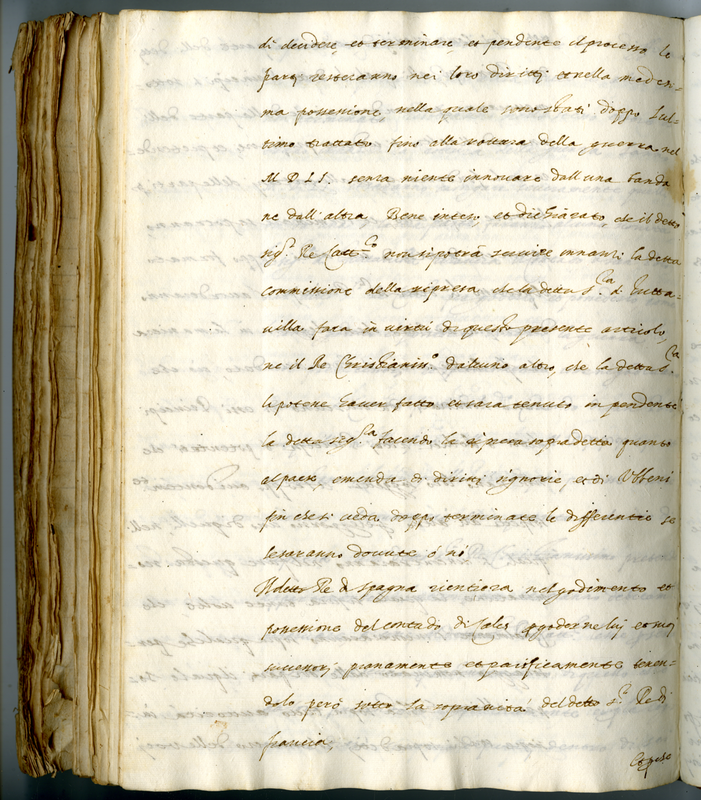 di decidere et terminare, et pendente il processo le
parti resteranno nei loro diritti et nella medesi-
ma possessione nella quale sono stati doppo l'ul-
timo trattato fino alla rottura della guerra nel
M D L I. senza niente innovare dall'una banda
ne dall'altra. Bene inteso, et dichiarato, che il detto
sig.r Re Catt.co non si potrà servire innanzi la detta
commissione della ripresa che la detta s.ra d'Eutta-
villa farà in virtù di questo presente articolo,
ne il Re Christianis.o d'alcuno altro, che la detta s.ra
li potene haver fatto et sarà tenuto in pendente
la detta sig.ra facendo la ripresa sopradetta quanto
al pack, emenda di diritti signorie, et di
fin che si veda doppo terminate le differentie se
le saranno dovute ó nó
Il detto Re di spagna rientrera nel godimento et
possessione del contado di per goderne lui et suoi
successori pianamente et pacificamente tenen-
dolo però sotto la sopranità del detto s.r Re di
francia.